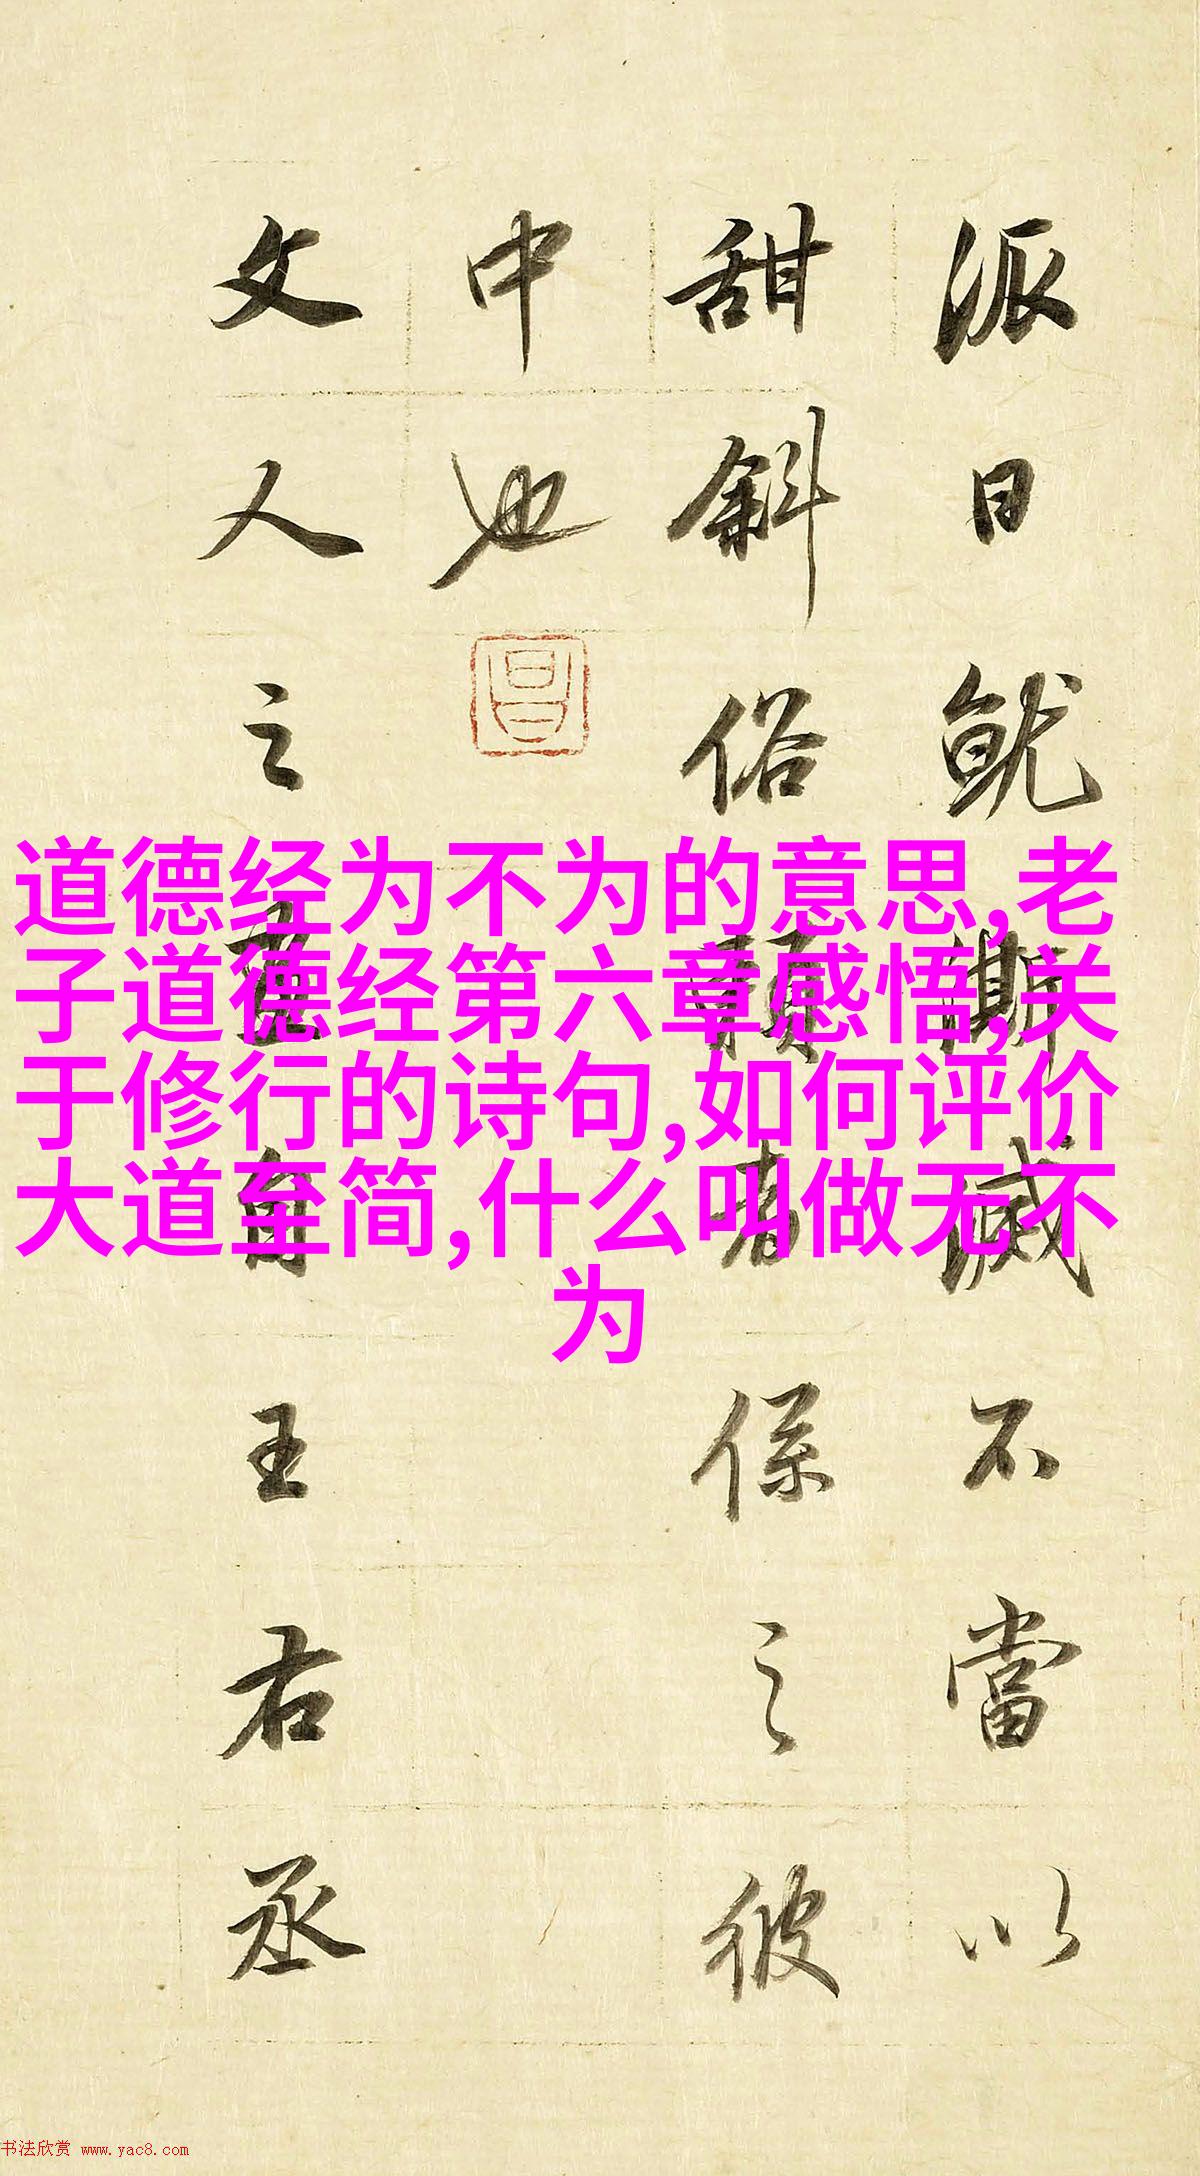 派日就澌滅不當以
甜斜俗賴者係之彼
中也
昌
文人之畫自王右丞
道德经为不为的意思,老
子道德经第六章感悟,关
于修行的诗句,如何评价
大道至简,什么叫做无不
为
书法欣赏 www.yac8.com